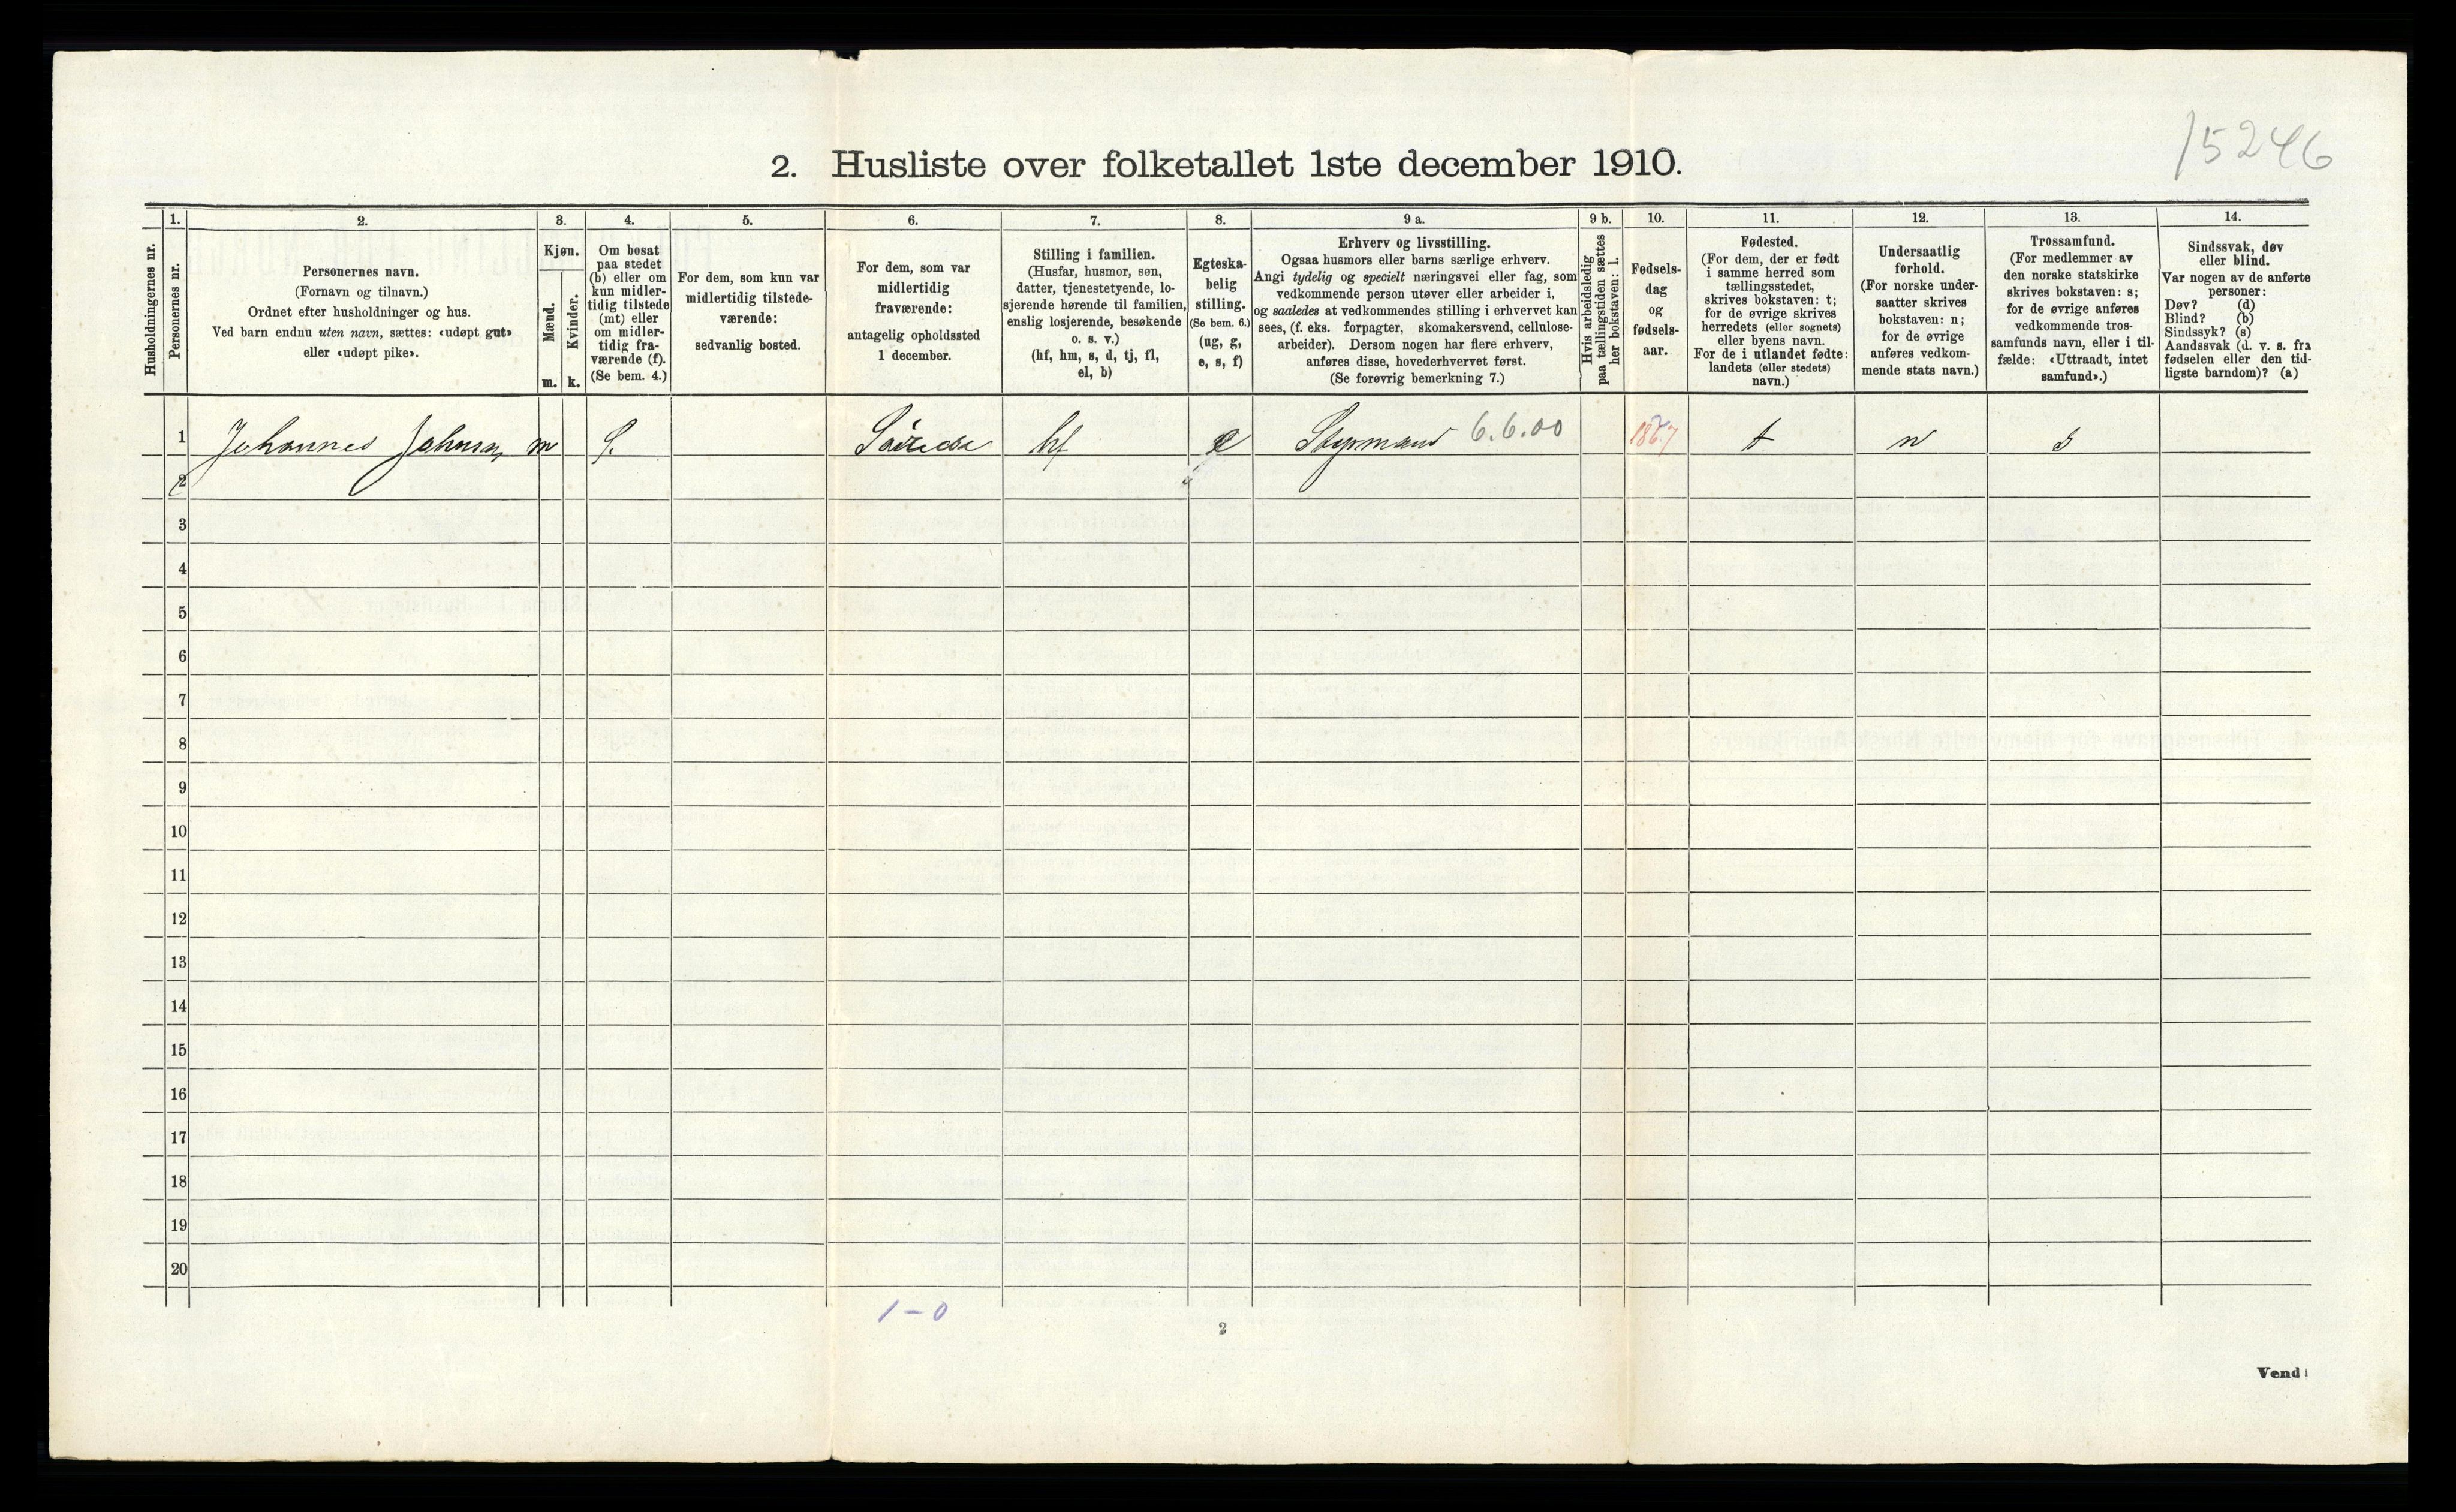 15246
2. Husliste over folketallet 1ste december 1910.
Husholdningernes nr.
1.
Personernes nr.
2.
Personernes navn.
(Fornavn og tilnavn.)
Ordnet efter husholdninger og hus.
Ved barn endnu uten navn, sættes: «udøpt gut»
eller «udøpt pike».
3.
Kjøn.
Mænd.
Kvinder.
m. k.
4.
Om bosat
paa stedet
(b) eller om
kun midler-
tidig tilstede
(mt) eller
om midler-
tidig fra-
værende (f).
(Se bem. 4.)
5.
For dem, som kun var
midlertidig tilstede-
værende:
sedvanlig bosted.
6.
For dem, som var
midlertidig
fraværende:
antagelig opholdssted
1 december.
7.
Stilling i familien.
(Husfar, husmor, søn,
datter, tjenestetyende, lo-
sjerende hørende til familien,
enslig losjerende, besøkende
o. s. v.)
(hf, hm, s, d, tj, fl,
el, b)
8.
Egteska-
belig
stilling.
(Se bem. 6.)
(ug, g,
e, s, f)
9 a.
Erhverv og livsstilling.
Ogsaa husmors eller barns særlige erhverv.
Angi tydelig og specielt næringsvei eller fag, som
vedkommende person utøver eller arbeider i,
og saaledes at vedkommendes stilling i erhvervet kan
sees, (f. eks. forpagter, skomakersvend, cellulose-
arbeider). Dersom nogen har flere erhverv,
anføres disse, hovederhvervet først.
(Se forøvrig bemerkning 7.)
9 b.
Hvis arbeidsledig
paa tællingstiden sættes
her bokstaven: l.
10.
Fødsels-
dag
og
fødsels-
aar.
11.
Fødested.
(For dem, der er født
i samme herred som
tællingsstedet,
skrives bokstaven: t;
for de øvrige skrives
herredets (eller sognets)
eller byens navn.
For de i utlandet fødte:
landets (eller stedets)
navn.)
12.
Undersaatlig
forhold.
(For norske under-
saatter skrives
bokstaven: n;
for de øvrige
anføres vedkom-
mende stats navn.)
13.
Trossamfund.
(For medlemmer av
den norske statskirke
skrives bokstaven: s;
for de øvrige anføres
vedkommende tros-
samfunds navn, eller i til-
fælde: «Uttraadt, intet
samfund».)
14.
Sindssvak, døv
eller blind.
Var nogen av de anførte
personer:
Døv? (d)
Blind? (b)
Sindssyk? (s)
Aandssvak (d. v. s. fra
fødselen eller den tid-
ligste barndom)? (a)
1 Johannes Johnsen m f. hf e Styrmand 6.6.00 1867 t n s
2
3
4
5
6
7
8
9
10
11
12
13
14
15
16
17
18
19
20
1-0
2
Vend